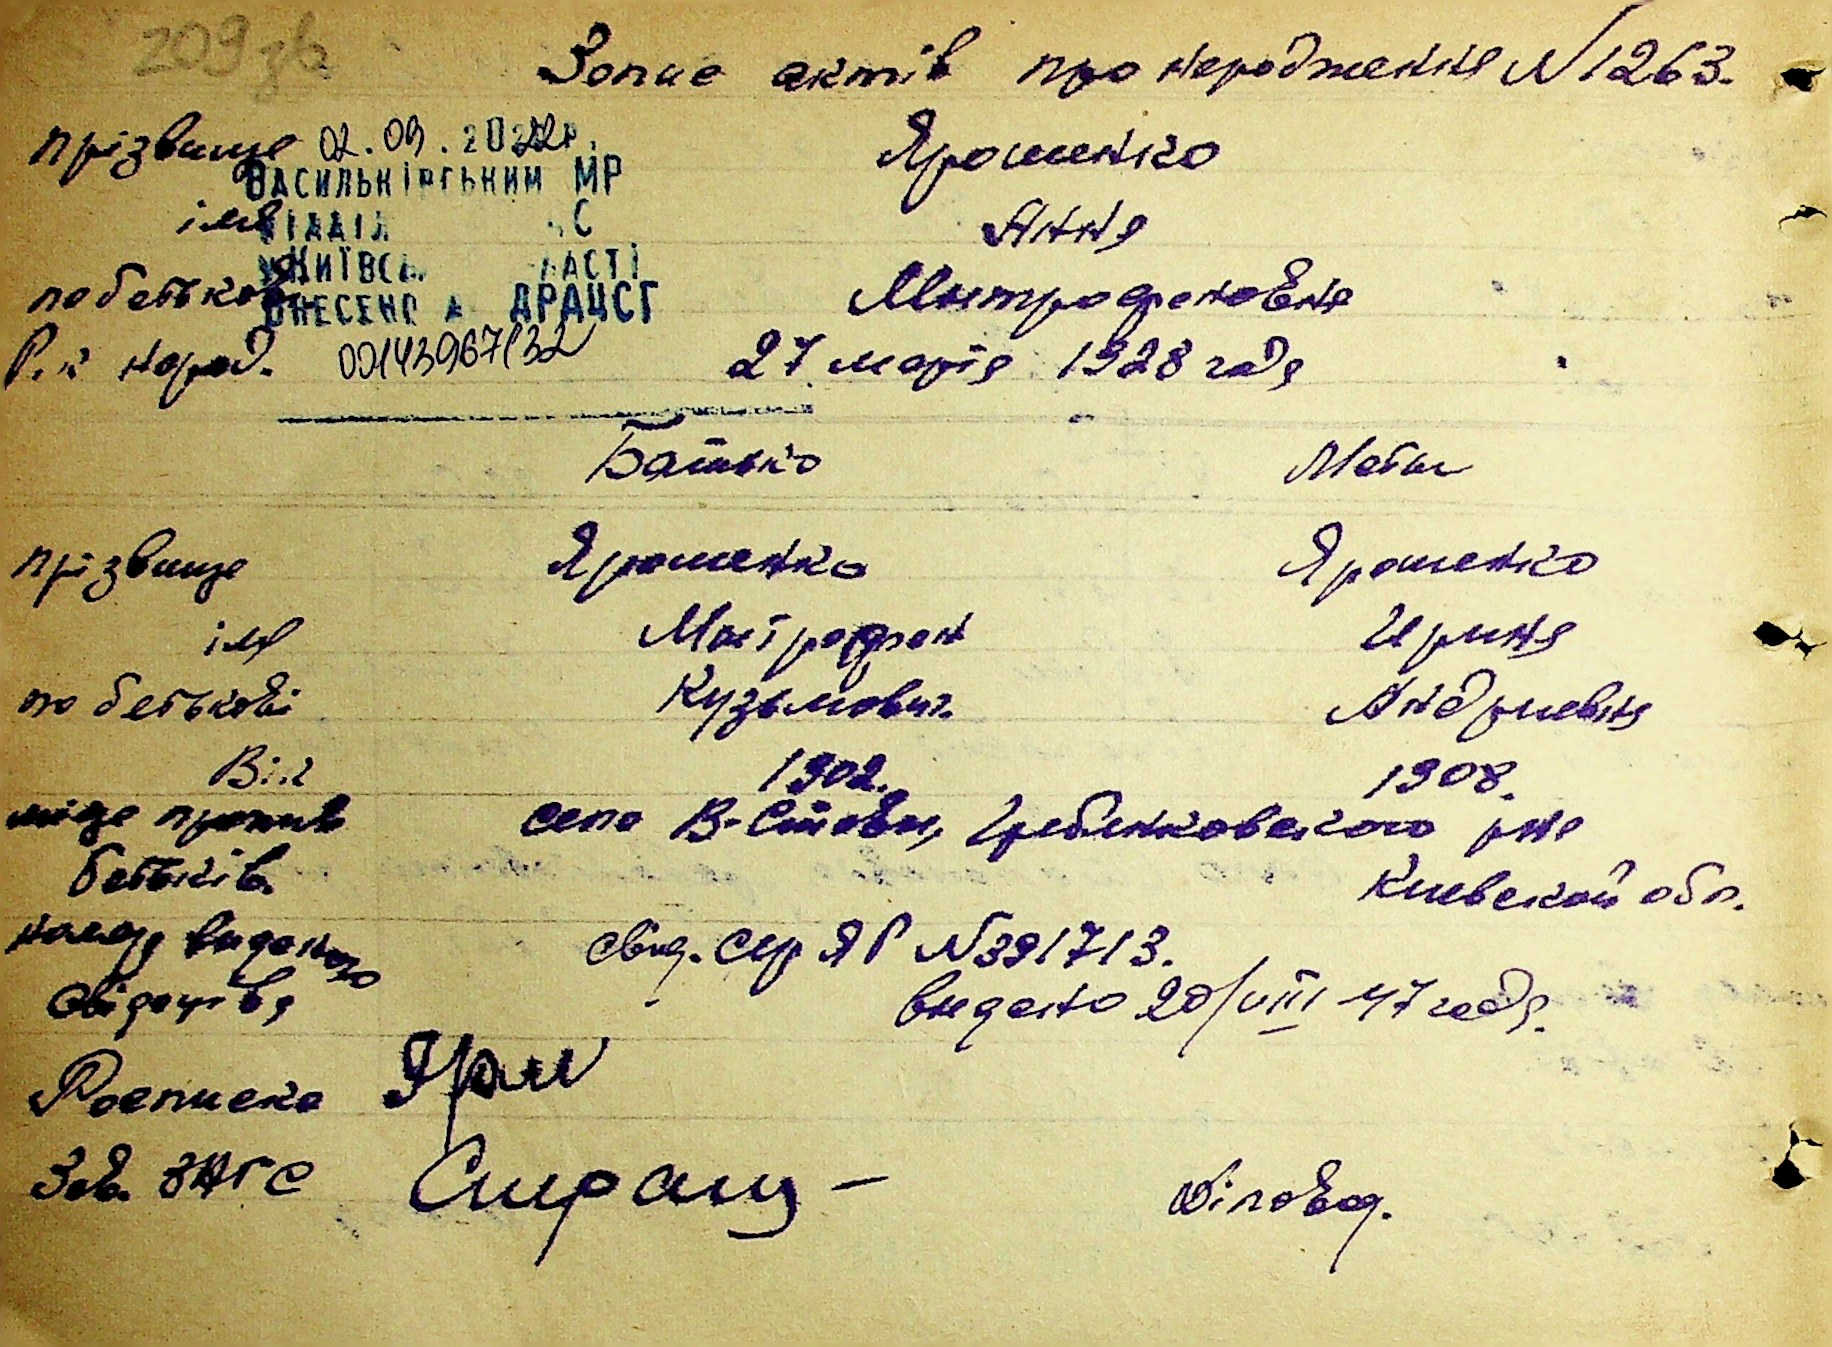 209 зв
Запис актів про народження N 1263.
прізвище 02.09.2022р. Ярошенко
Васильківським МР
імя Анна
Відділ С
Київс АСТІ
по батькові Митрофановна
Внесено ДРАЦСГ
Р. і народ. 00143967132 27 марта 1928 года
Батько Мати
прізвище Ярошенко Ярошенко
імя Митрофан Ирина
по батькові Кузьмович Андриевна
Вік 1902. 1908.
місце прожив село В-Стовы, Гребенковского р-на
батьків. Киевской обл.
номер виданого свид. сер ЯГ N 391713.
свідоцтва видано 20/VIII 47 года.
Росписка Яром
Зав. ЗАГС Діловод.